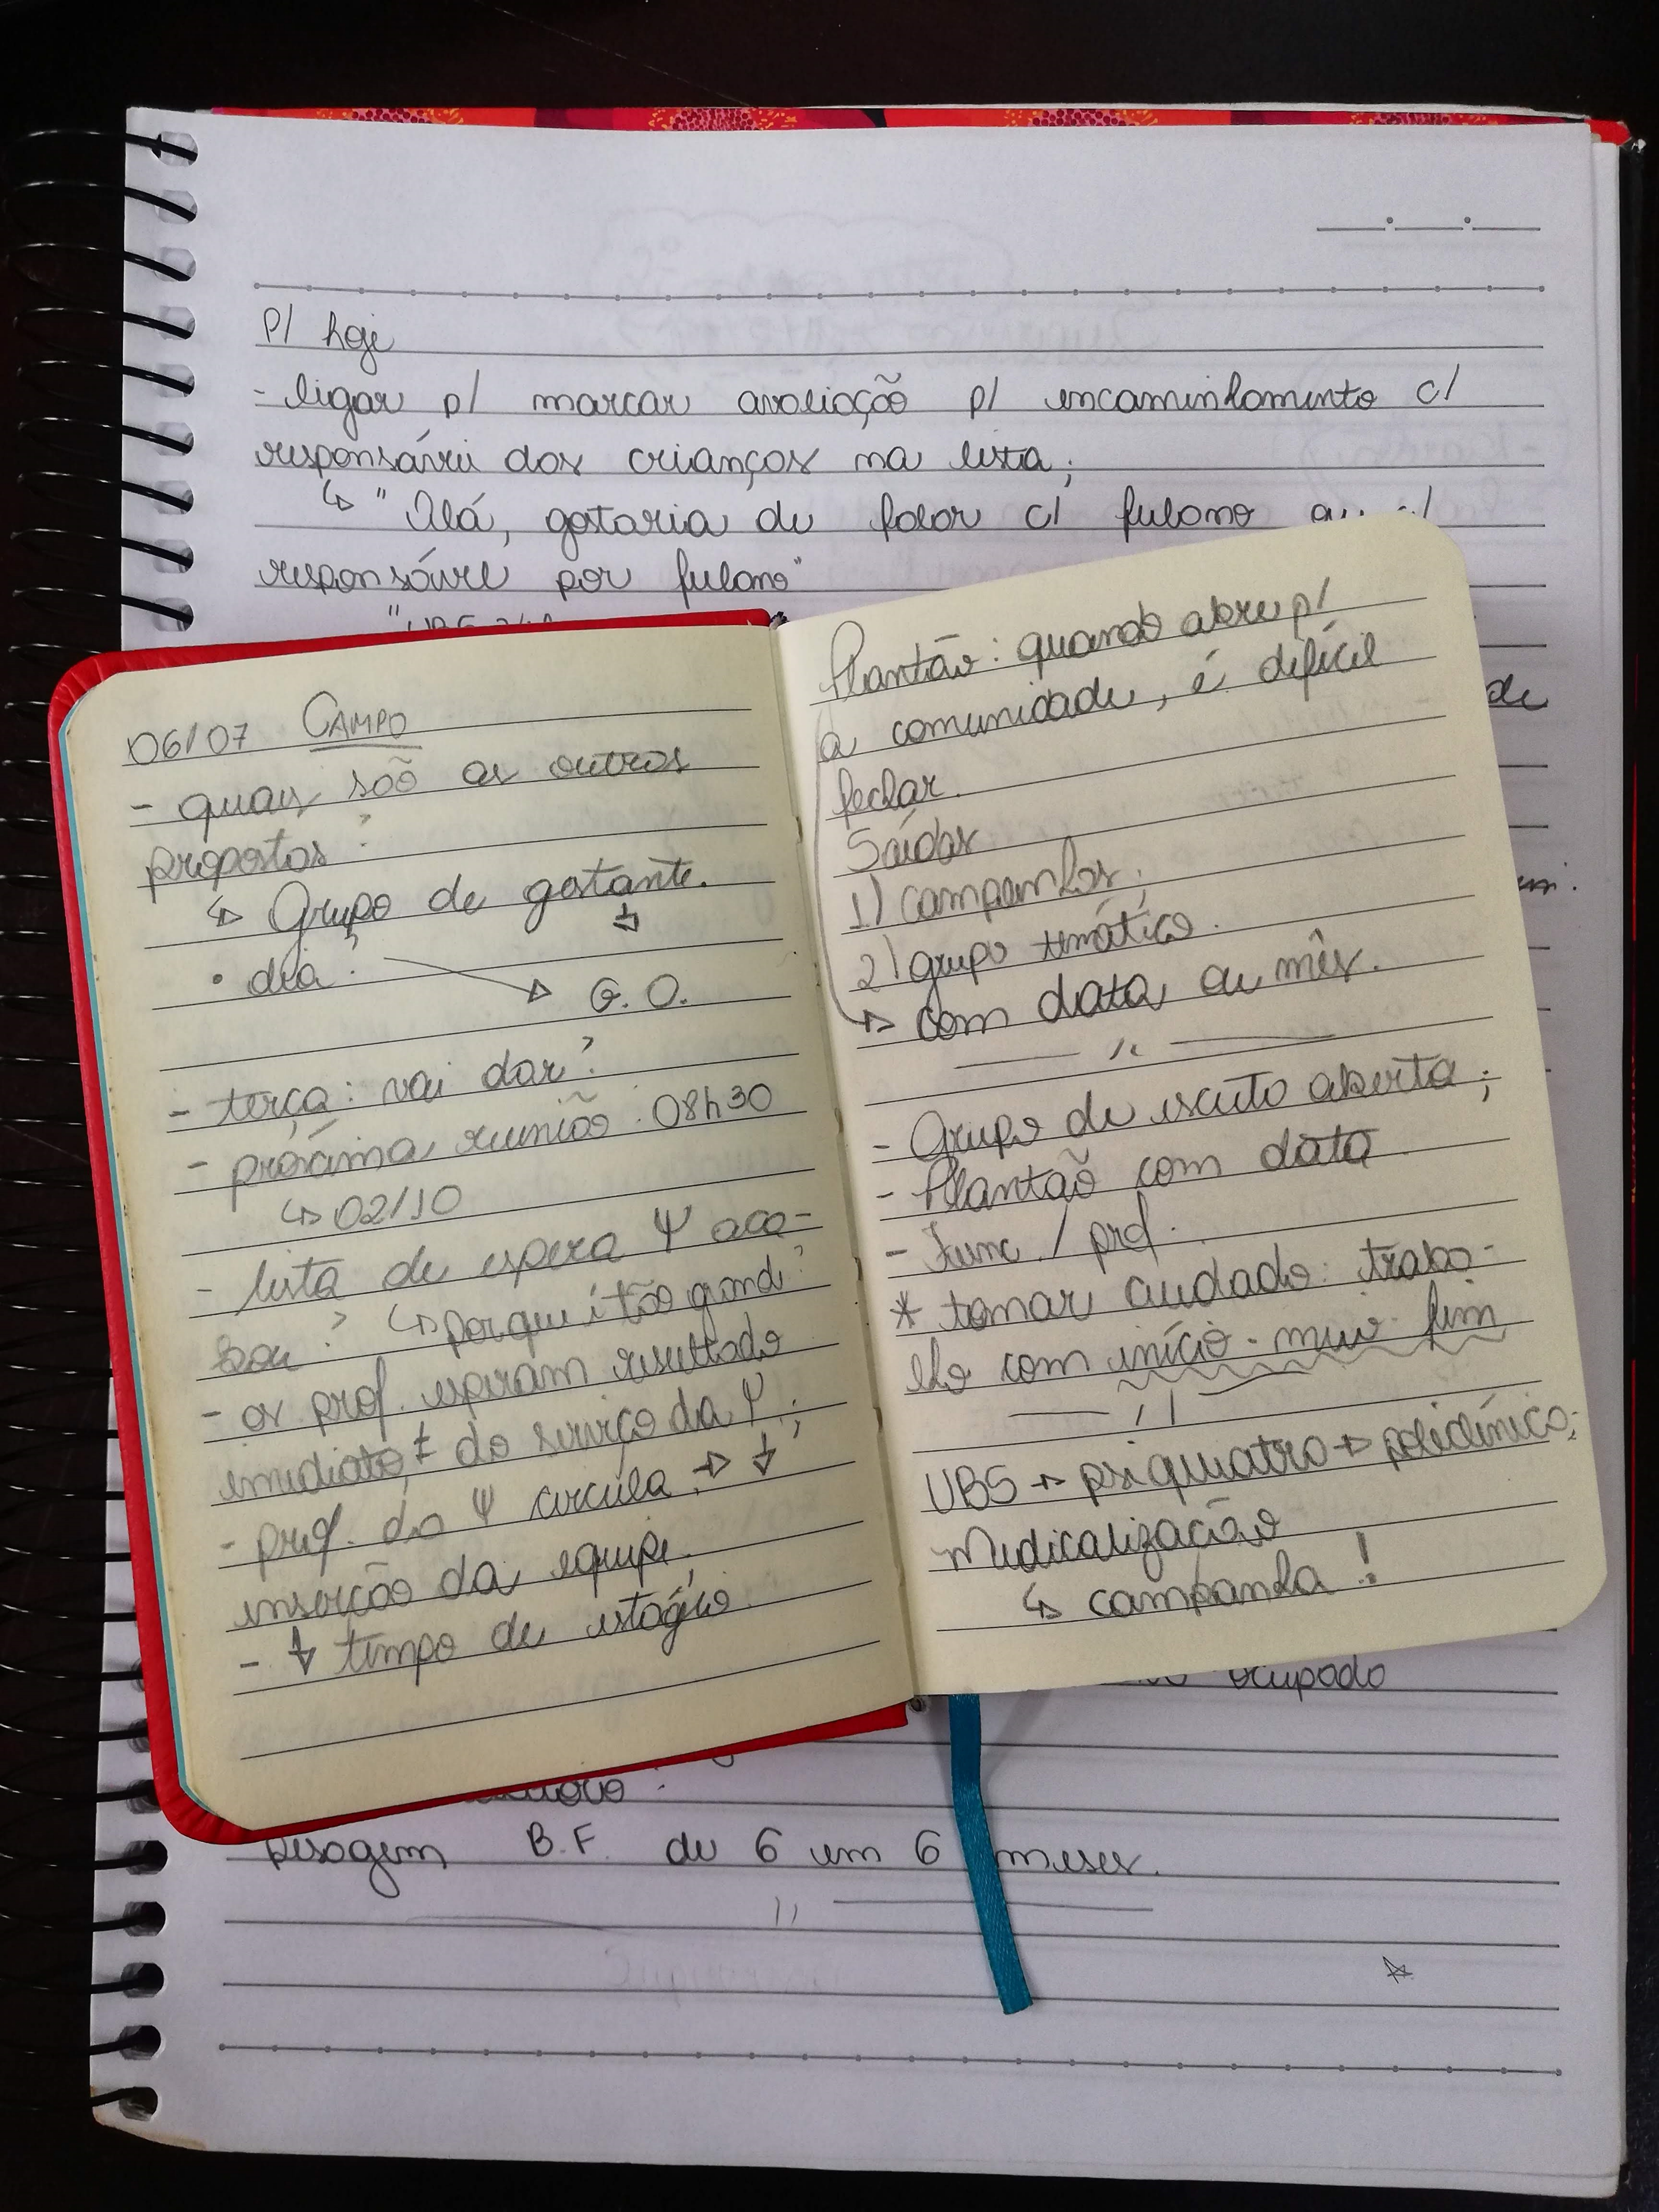 p/ hoje
- ligar p/ marcar avaliação p/ encaminhamento c/
responsável das crianças na lista;
↳ "Olá, gostaria de falar c/ fulano
responsável por fulano"
de
ocupado
pesagem B.F. de 6 em 6 meses.
06/07 CAMPO
- quais são as outras
propostas?
↳ Grupo de gestante.
↓
• dia? → G.O.
- terça: vai dar?
- próxima reunião: 08h30
↳ 02/10
- lista de espera Ψ aca-
bou? ↳ porque é tão grande?
- os prof. esperam resultado
imediato do serviço da Ψ;
- prof. da Ψ circula → ↓
inserção da equipe;
- ↓ tempo de estágio
Plantão: quando abre p/
a comunidade, é difícil
fechar.
Saídas
1) campanhas;
2) grupo temático.
↳ com data ou mês.
- Grupo de escuta aberta;
- Plantão com data
- Func. / prof.
* tomar cuidado: traba-
lho com início - meio - fim
UBS → psiquiatra → policlínica;
Medicalização
↳ campanha!